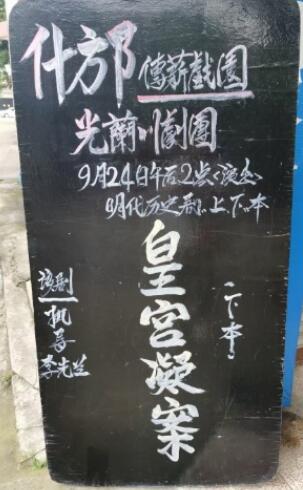 什邡傳薪戲園
光蘭川劇團
9月24日午后2点《演出》
明代历史剧:上.下.本
皇宫凝案
《下本》
該剧
执导
李先兰